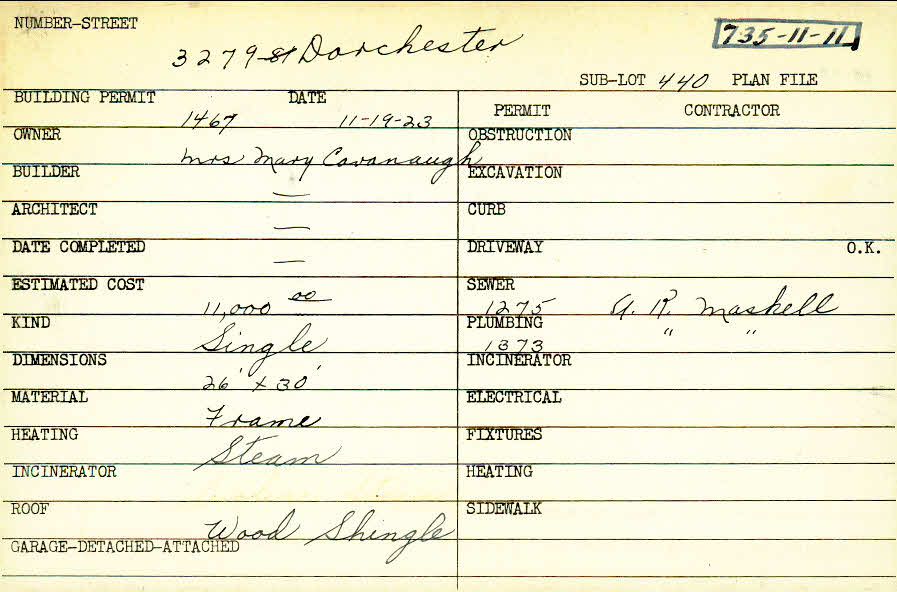 NUMBER-STREET
735-11-11
3279-81 Dorchester
SUB-LOT 440 PLAN FILE
BUILDING PERMIT DATE
1467 11-19-23
OWNER
Mrs Mary Cavanaugh
BUILDER
—
ARCHITECT
—
DATE COMPLETED
—
ESTIMATED COST
11,000 00
KIND
Single
DIMENSIONS
26' x 30'
MATERIAL
Frame
HEATING
Steam
INCINERATOR
ROOF
Wood Shingle
GARAGE-DETACHED-ATTACHED
PERMIT CONTRACTOR
OBSTRUCTION
EXCAVATION
CURB
DRIVEWAY O.K.
SEWER
1275 A. R. Maskell
PLUMBING " "
1373
INCINERATOR
ELECTRICAL
FIXTURES
HEATING
SIDEWALK